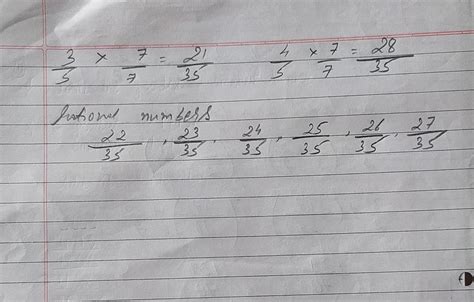 3/5 × 7/7 = 21/35    4/5 × 7/7 = 28/35
Rational numbers
22/35, 23/35, 24/35, 25/35, 26/35, 27/35